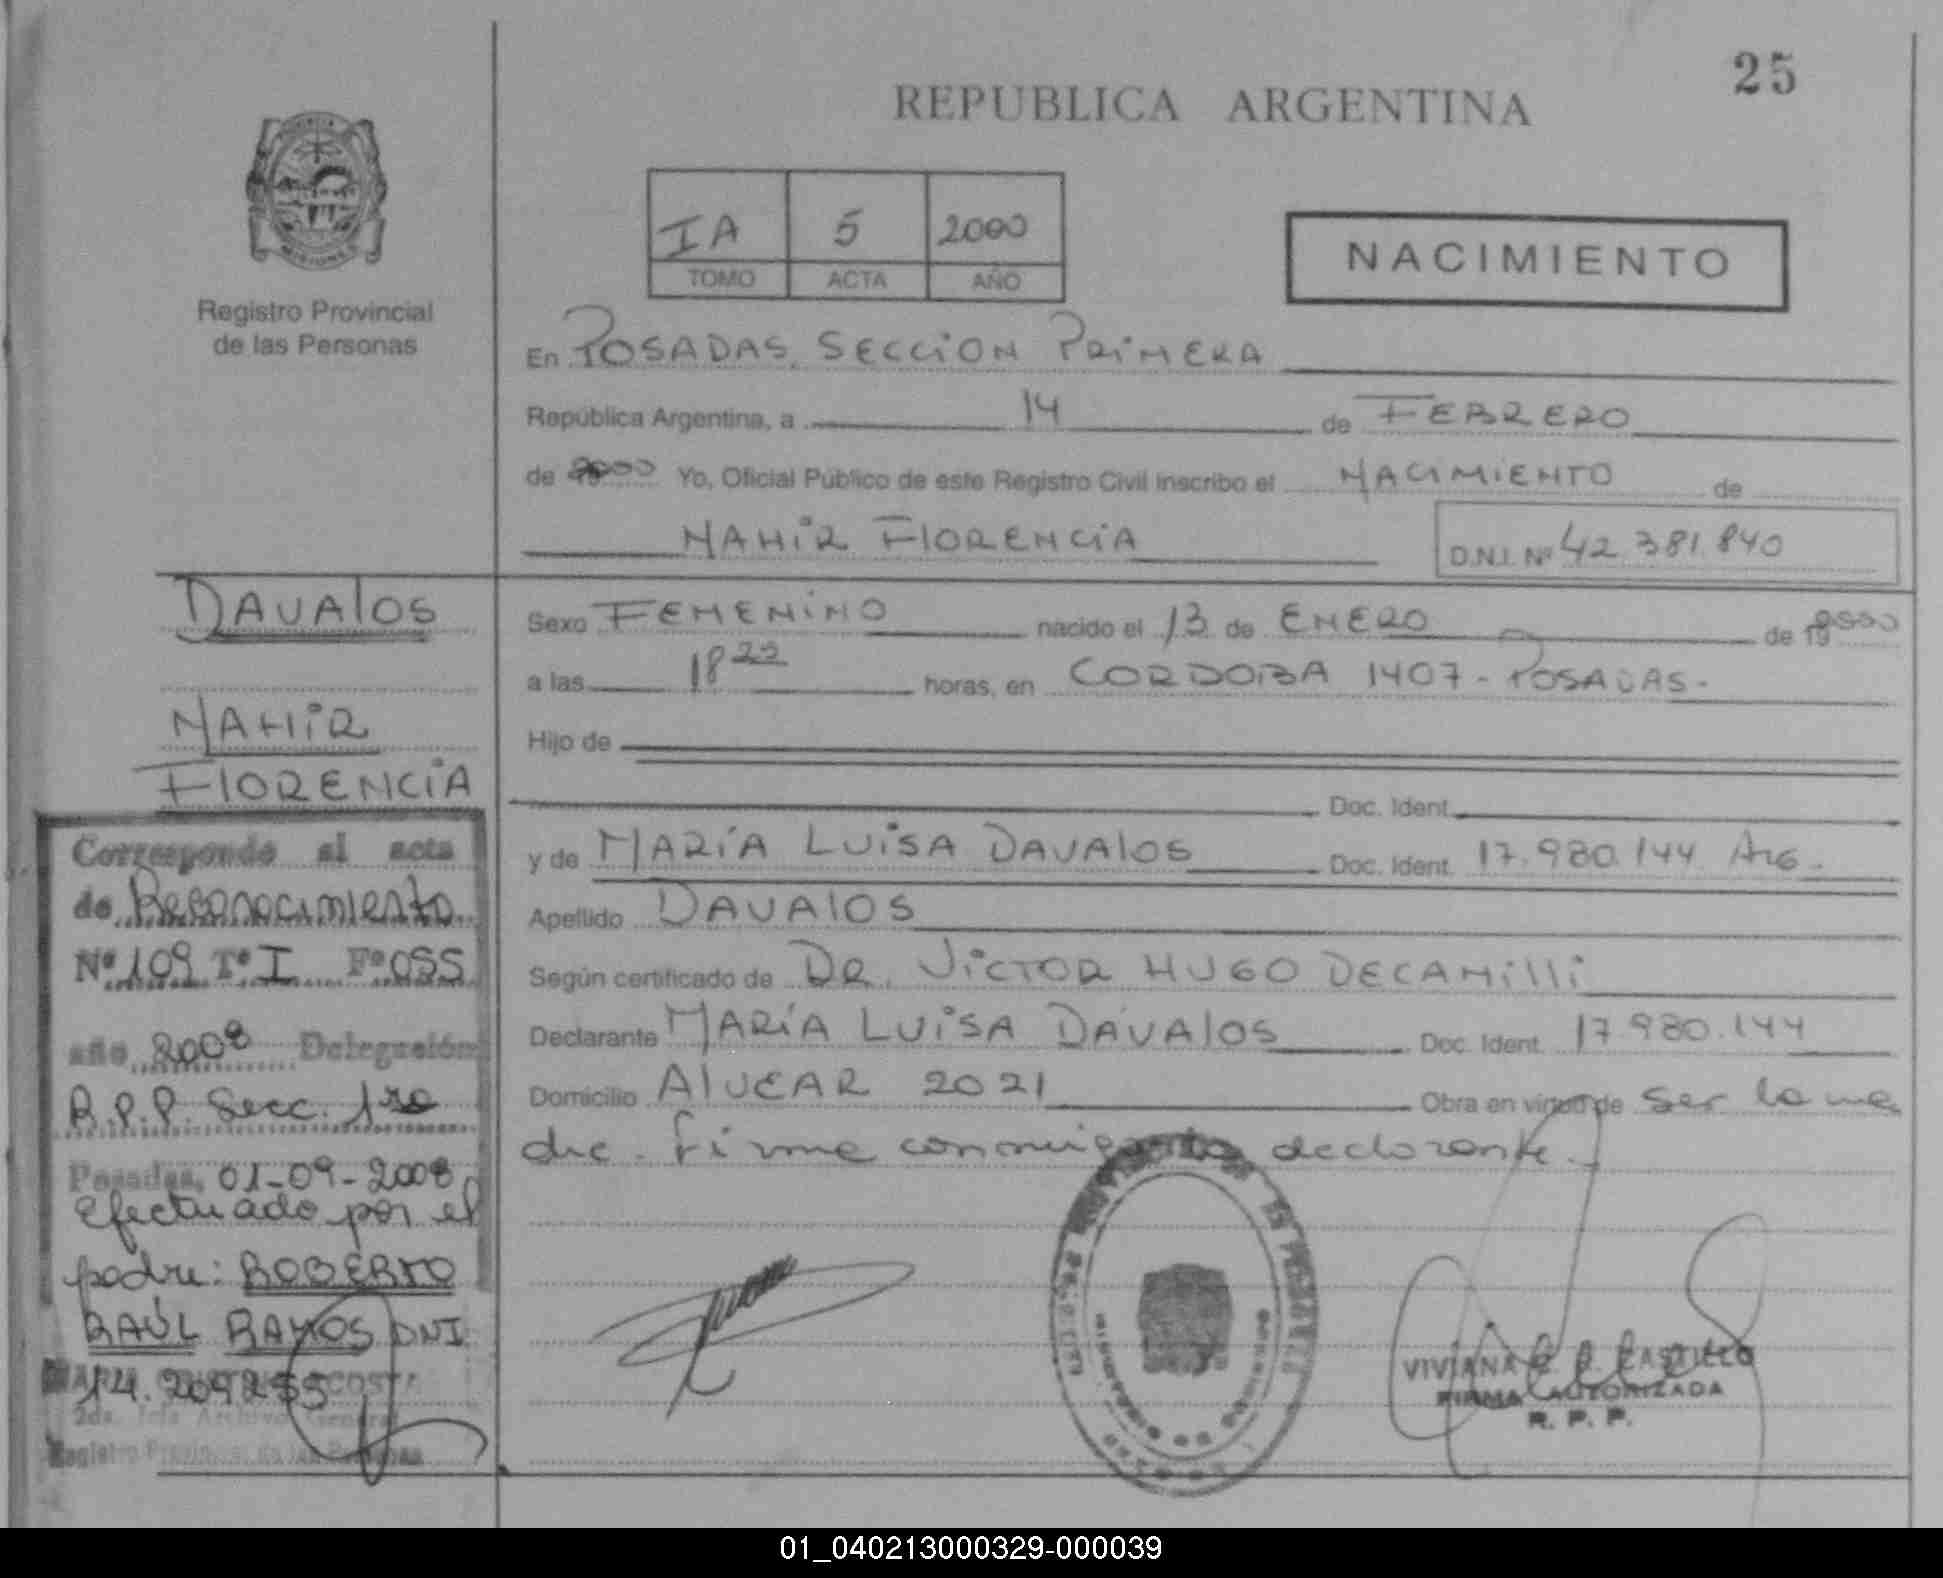 25
REPUBLICA ARGENTINA
MISIONES
Registro Provincial
de las Personas
IA 5 2000
TOMO ACTA AÑO
NACIMIENTO
En POSADAS, SECCION PRIMERA
República Argentina, a 14 de FEBRERO
de 2000 Yo, Oficial Público de este Registro Civil inscribo el NACIMIENTO de
NAHIR FLORENCIA
D.N.I. Nº 42.381.840
DAVALOS
NAHIR
FLORENCIA
Sexo FEMENINO nacido el 13 de ENERO de 2000
a las 18 22 horas, en CORDOBA 1407 - POSADAS -
Hijo de
Doc. Ident.
y de MARÍA LUISA DAVALOS Doc. Ident. 17.980.144 ARG.
Apellido DAVALOS
Según certificado de DR. VICTOR HUGO DECAMILLI
Declarante MARÍA LUISA DAVALOS Doc. Ident. 17.980.144
Domicilio ALVEAR 2021 Obra en virtud de ser la ma
dre. Firma conmigo declarante.-
Corresponde al acta
de Reconocimiento
Nº 109 Tº I Fº 055
año 2008 Delegación
R.P.P. Secc. 1ra
Posadas, 01-09-2008
Efectuado por el
padre: ROBERTO
RAÚL RAMOS DNI
14.209255
ACOSTA
2da. Jefa Archivo General
Registro Provincial de las Personas
VIVIANA CASTILLO
FIRMA AUTORIZADA
R. P. P.
01_040213000329-000039